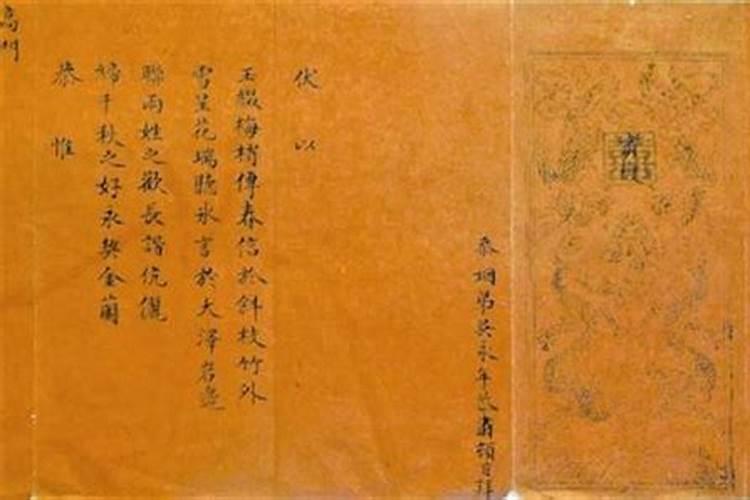 忝姻弟吳永年端肅頓首拜
伏以
玉綴梅梢傳春信於斜枝竹外
雪呈花瑞聽冰言於大澤岩邊
聯兩姓之歡長諧伉儷
締千秋之好永契金蘭
恭惟
高門